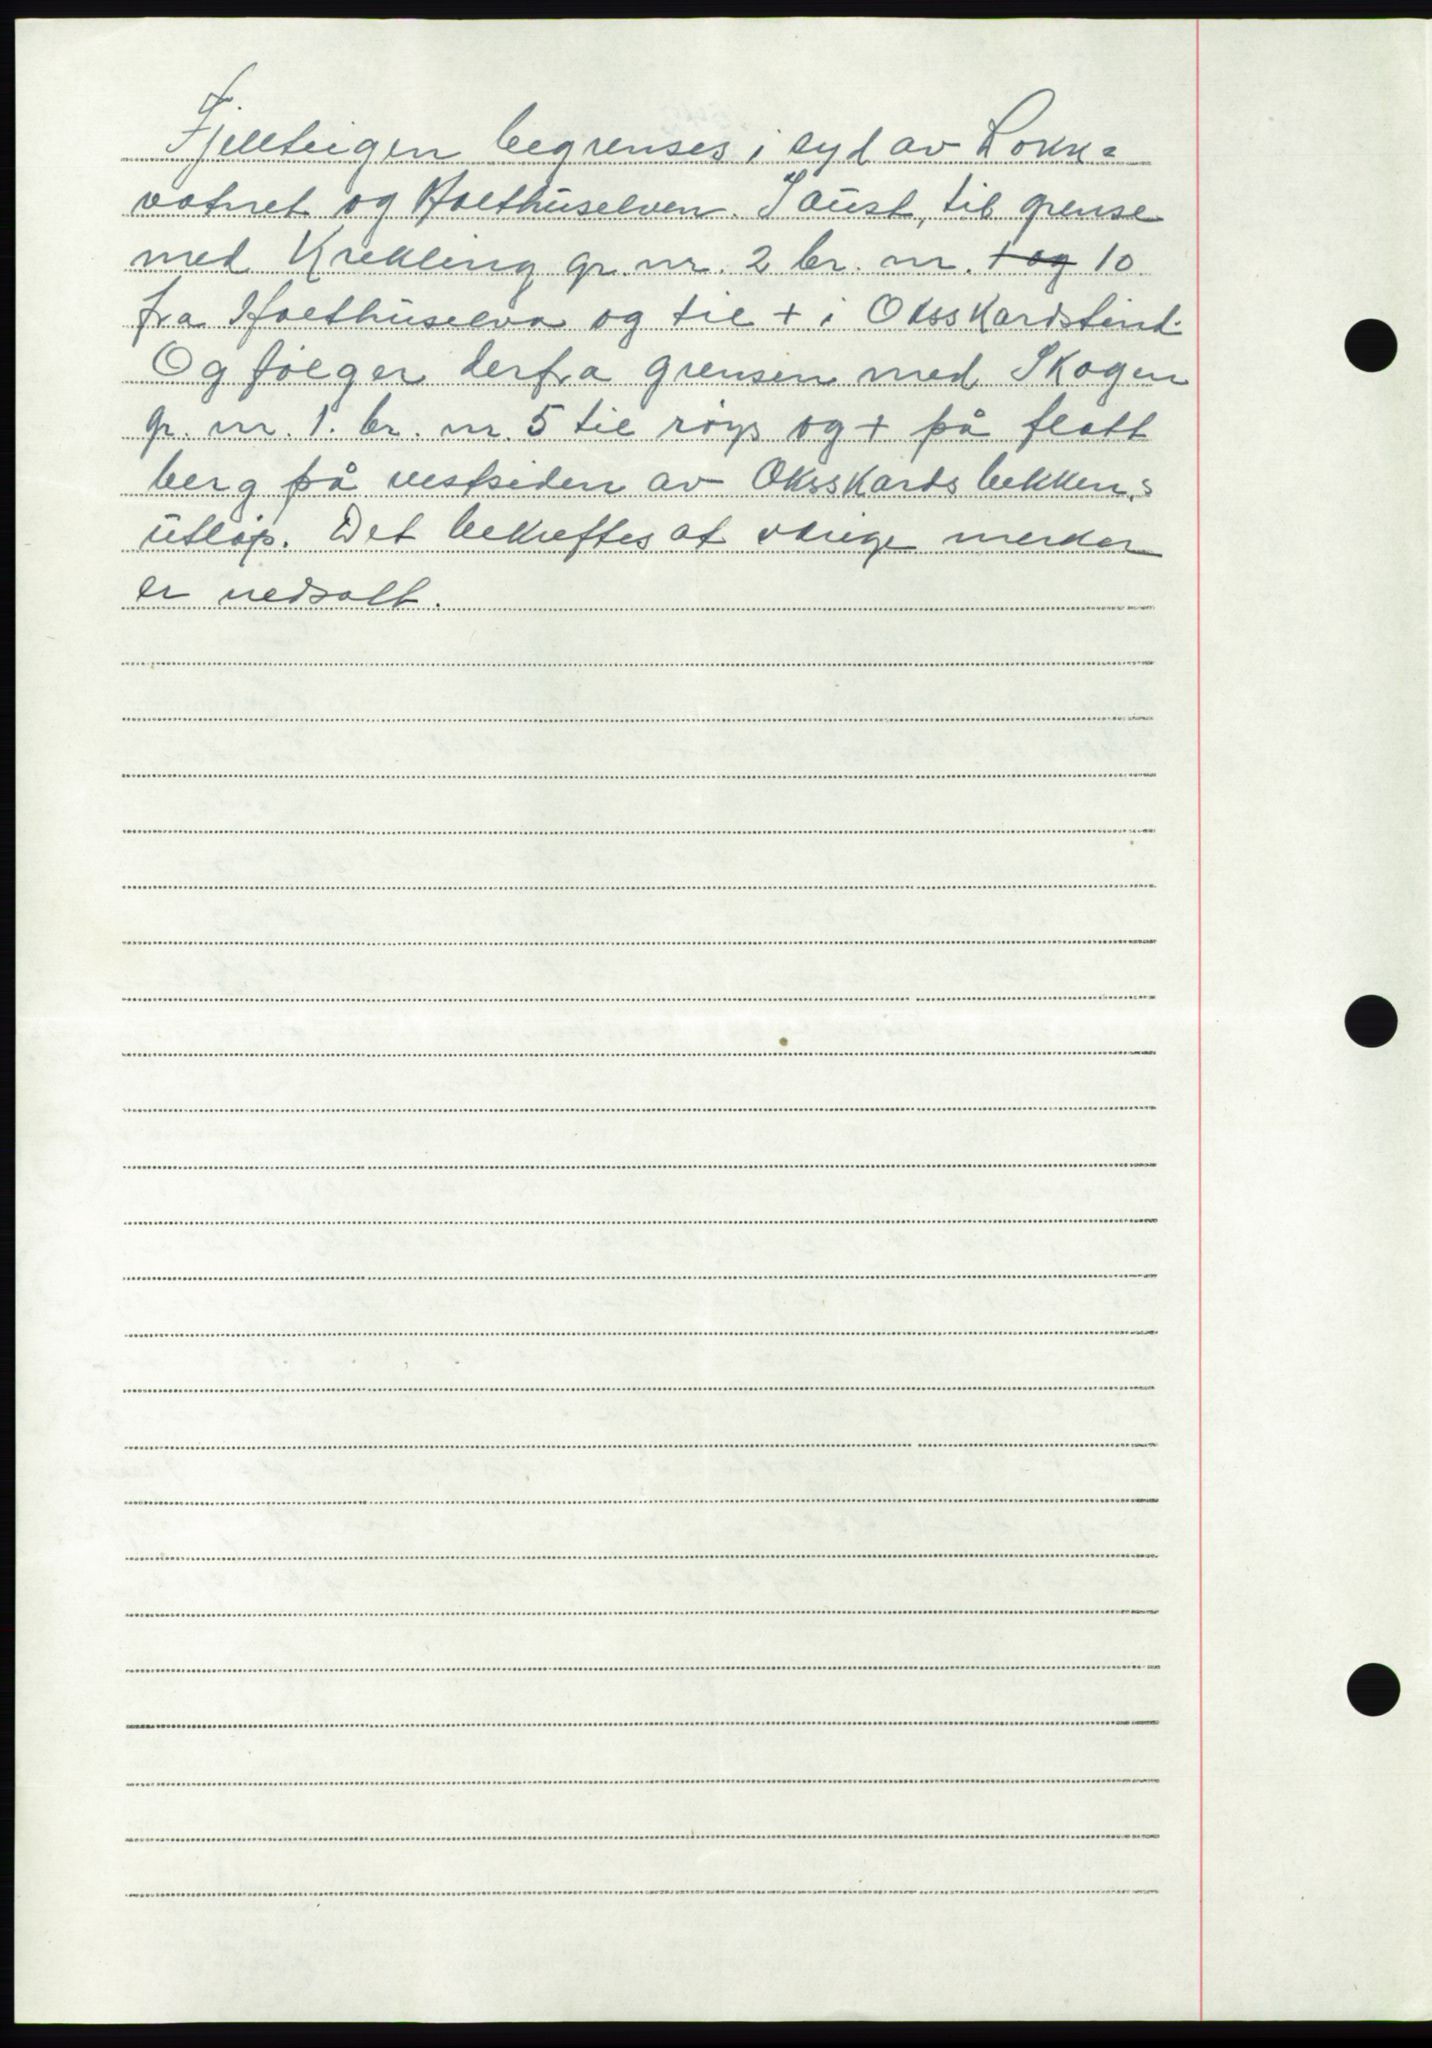 Fjellteigen begrenses i syd av Lokk=
vatnet og Holthuselven. I aust, til grense
med Krekling gr. nr. 2 br. nr. + og 10
fra Holthuselva og til + i Oksskardstind.
Og følger derfra grensen med Skogen
gr. nr. 1. br. nr. 5 til røys og + på flatt
berg på vestsiden av Oksskardsbekken,s
utløp. Det bekreftes at øvrige merker
er nedsatt.